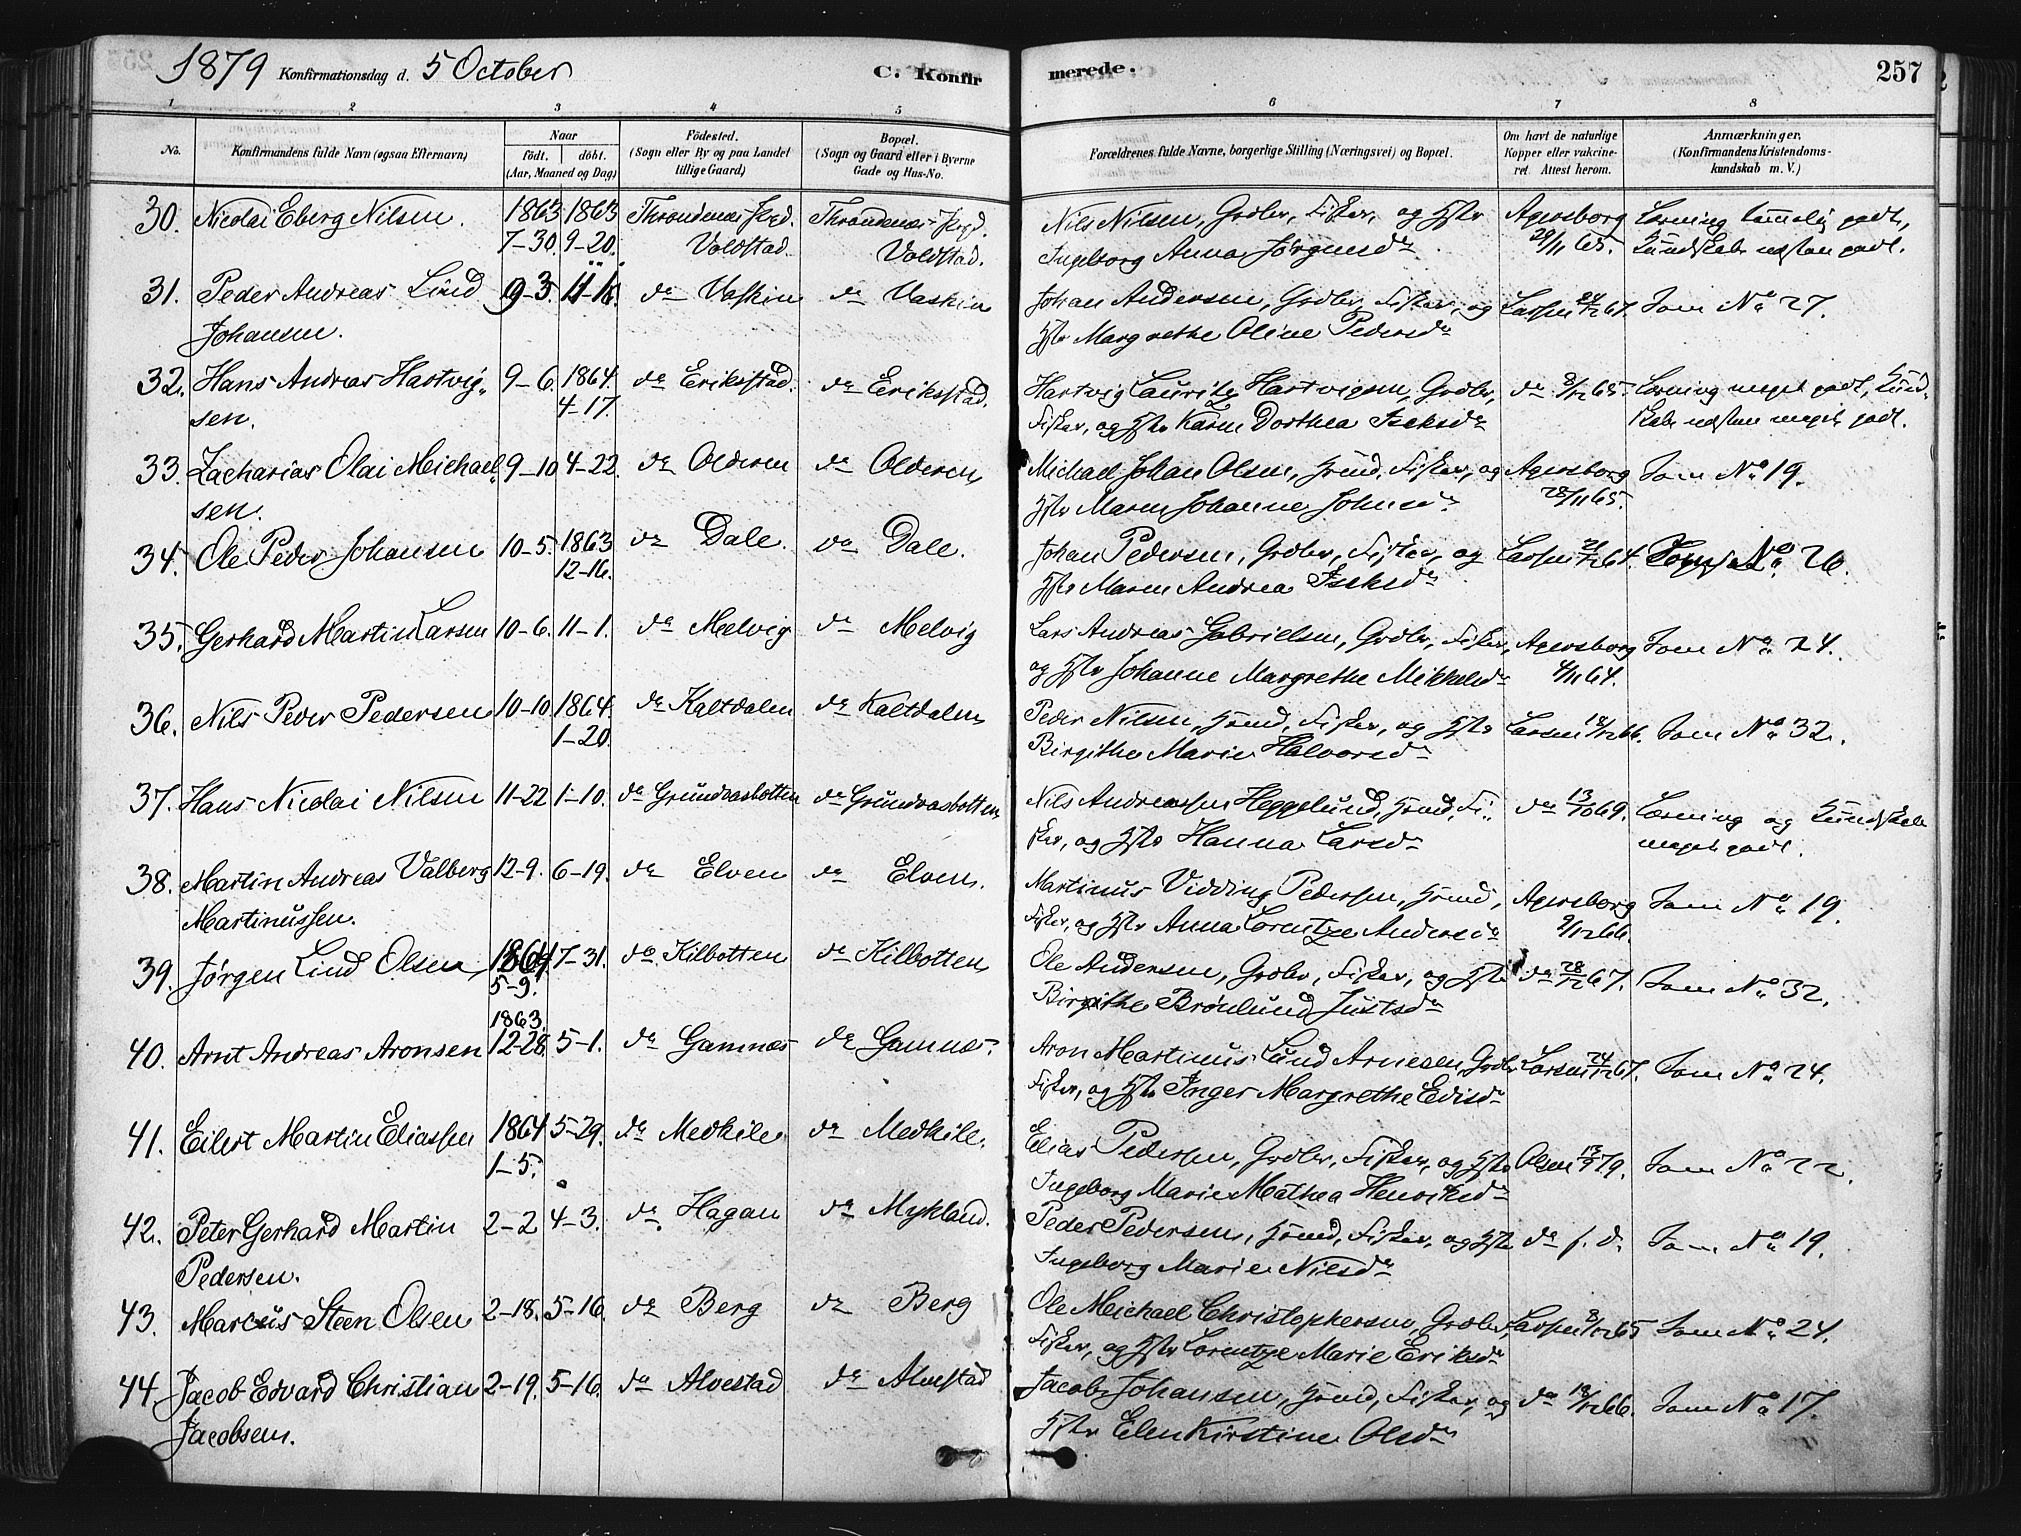 1879 Konfirmationsdag d. 5 October C. Konfir merede. 257
1 2 3 4 5 6 7 8
No. Konfirmandens fulde Navn (ogsaa Efternavn) Naar født. døbt. (Aar, Maaned og Dag) Fødested. (Sogn eller By og paa Landet tillige Gaard) Bopæl. (Sogn og Gaard eller i Byerne Gade og Hus-No. Forældrenes fulde Navne, borgerlige Stilling (Næringsvei) og Bopæl. Om havt de naturlige Kopper eller vakcineret. Attest herom. Anmærkninger. (Konfirmandens Kristendomskundskab m. V.)
30. Nicolai Eberg Nilsen. 1863 1863 Throndenæs Pgd. Throndenæs Pgd. Nils Nilsen, Grdbr, Fisker, og Hstr Agersborg Læsning temmelig godt,
7-30. 9-20. Voldstad. Voldstad. Ingeborg Anna Jørgensdr 29/11 65. Kundskab næsten godt.
31. Peder Andreas Lind 9-3. 11-18. do Vaskin do Vaskin Johan Andersen, Grdbr, Fisker, og Larsen 24/12 67. Som No 27.
Johansen. Hstr Margrethe Oline Pedersdr
32. Hans Andreas Hartvig- 9-6. 1864. do Eriksstad. do Eriksstad. Hartvig Lauritz Hartvigsen, Grdbr, do 8/12 65. Læsning meget godt, Kund-
sen. 4-17. Fisker, og Hstr Karen Dorthea Iseksdr skab næsten meget godt.
33. Zacharias Olai Michael- 9-10. 4-22. do Olderen do Olderen Michael Johan Olsen, Huusmd, Fisker, og Agersborg Som No 19.
sen. Hstr Maren Johanne Johnsdr 28/11 65.
34. Ole Peder Johansen 10-5. 1863 do Dale. do Dale. Johan Pedersen, Grdbr, Fisker, og Larsen 21/12 64. Som No 26.
12-16. Hstr Maren Andrea Iseksdr
35. Gerhard Martin Larsen 10-6. 11-1. do Melvig do Melvig Lars Andreas Gabrielsen, Grdbr, Fisker, Agersborg Som No 24.
og Hstr Johanne Margrethe Mikkelsdr 4/11 64.
36. Nils Peder Pedersen 10-10. 1864. do Kaltdalen do Kaltdalen Peder Nilsen, Huusmd, Fisker, og Hstr Larsen 18/12 66. Som No 32.
1-20. Birgithe Marie Halvorsdr
37. Hans Nicolai Nilsen 11-22 1-10. do Grundvasbotten do Grundvasbotten Nils Andreassen Heggelund, Huusmd, Fi- do 13/10 69. Læsning og Kundskab
sker, og Hstr Hanna Larsdr meget godt.
38. Martin Andreas Valberg 12-9. 6-19. do Elven do Elven. Martinus Vidding Pedersen, Huusmd, Agersborg Som No 19.
Martinussen. Fisker, og Hstr Anna Lorentze Andersdr 9/12 66.
39. Jørgen Lind Olsen 1864 7-31. do Kilbotten do Kilbotten Ole Andersen, Grdbr, Fisker, og Hstr do 28/12 67. Som No 32.
5-9. Birgithe Brønlund Justsdr
1863.
40. Arnt Andreas Aronsen 12-28. 5-1. do Gamnæs do Gamnæs. Aron Martinus Lund Arnesen, Grdbr, Larsen 24/12 67. Som No 24.
Fisker, og Hstr Inger Margrethe Edisdr
41. Eilert Martin Eliassen 1864 5-29. do Medkile. do Medkile. Elias Pedersen, Grdbr, Fisker, og Hstr Olsen 13/9 79. Som No 22.
1-5. Ingeborg Marie Mathea Henriksdr
42. Peter Gerhard Martin 2-2 4-3. do Hagan do Mykland. Peder Pedersen, Huusmd, Fisker, og Hstr do s. d. Som No 19.
Pedersen. Ingeborg Marie Nilsdr
43. Marcus Steen Olsen 2-18. 5-16. do Berg do Berg Ole Michael Christophersen, Grdbr, Larsen 8/12 65 Som No 24.
Fisker, og Hstr Lorentze Marie Eriksdr
44. Jacob Edvard Christian 2-19. 5-16. do Alvestad do Alvestad Jacob Johansen, Huusmd, Fisker, og do 18/12 66. Som No 17.
Jacobsen. Hstr Elen Kirstine Olsdr